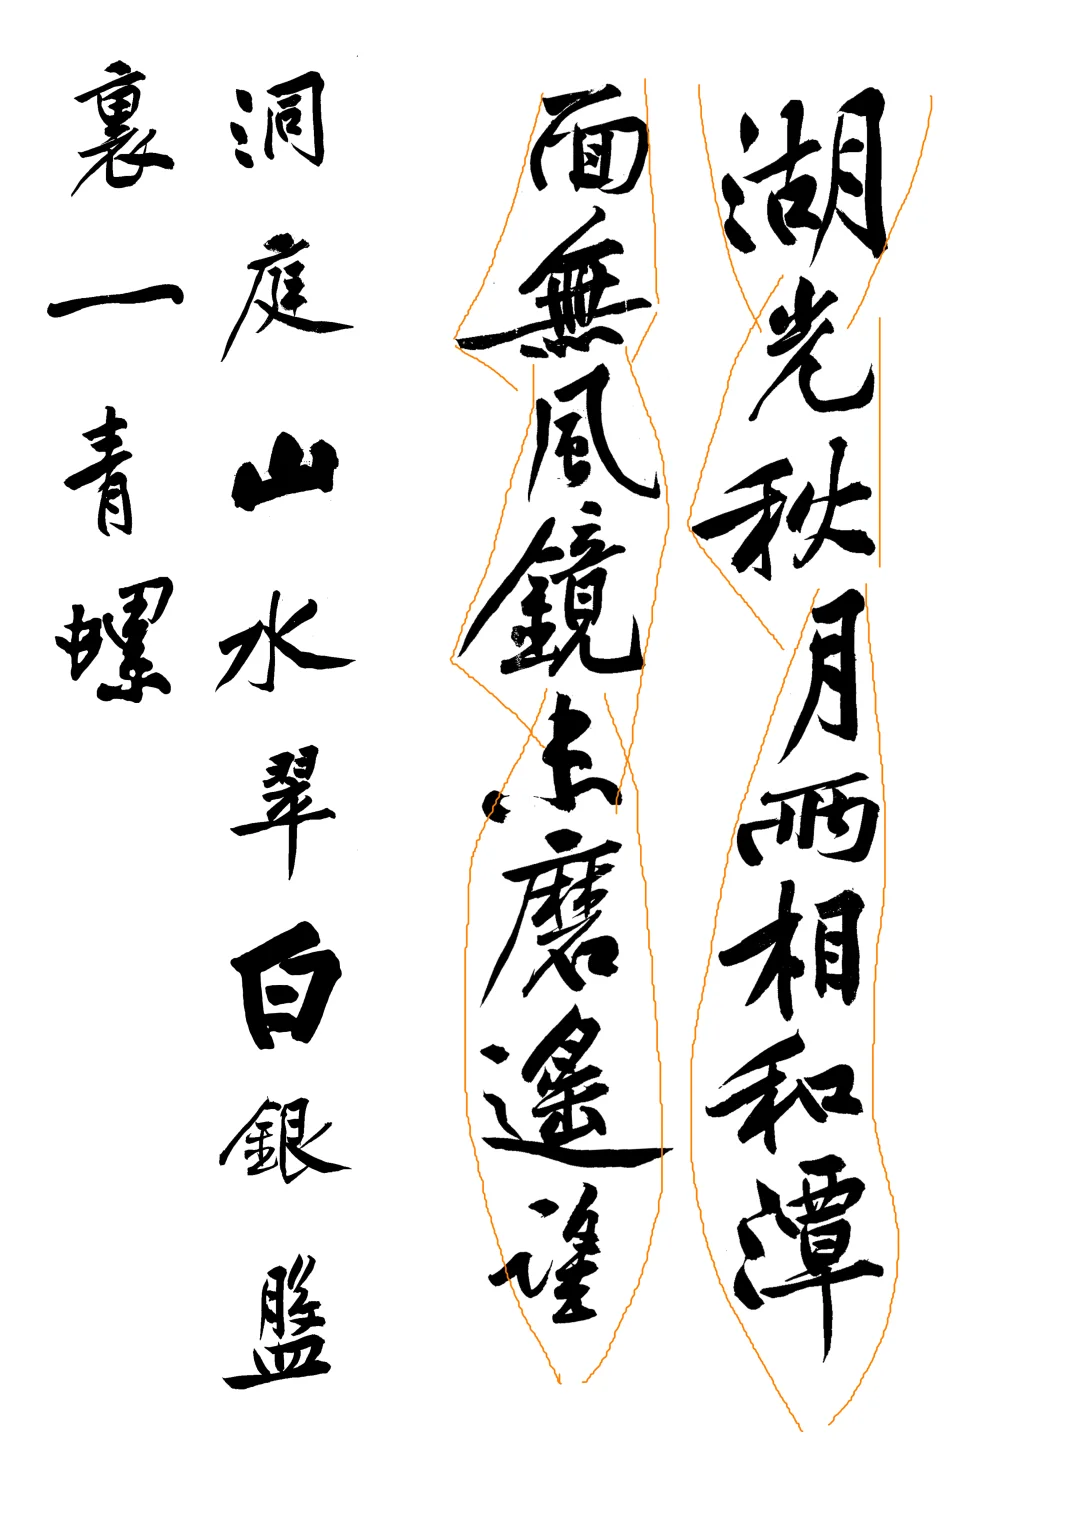 湖光秋月兩相和潭
面無風鏡未磨遙望
洞庭山水翠白銀盤
裏一青螺